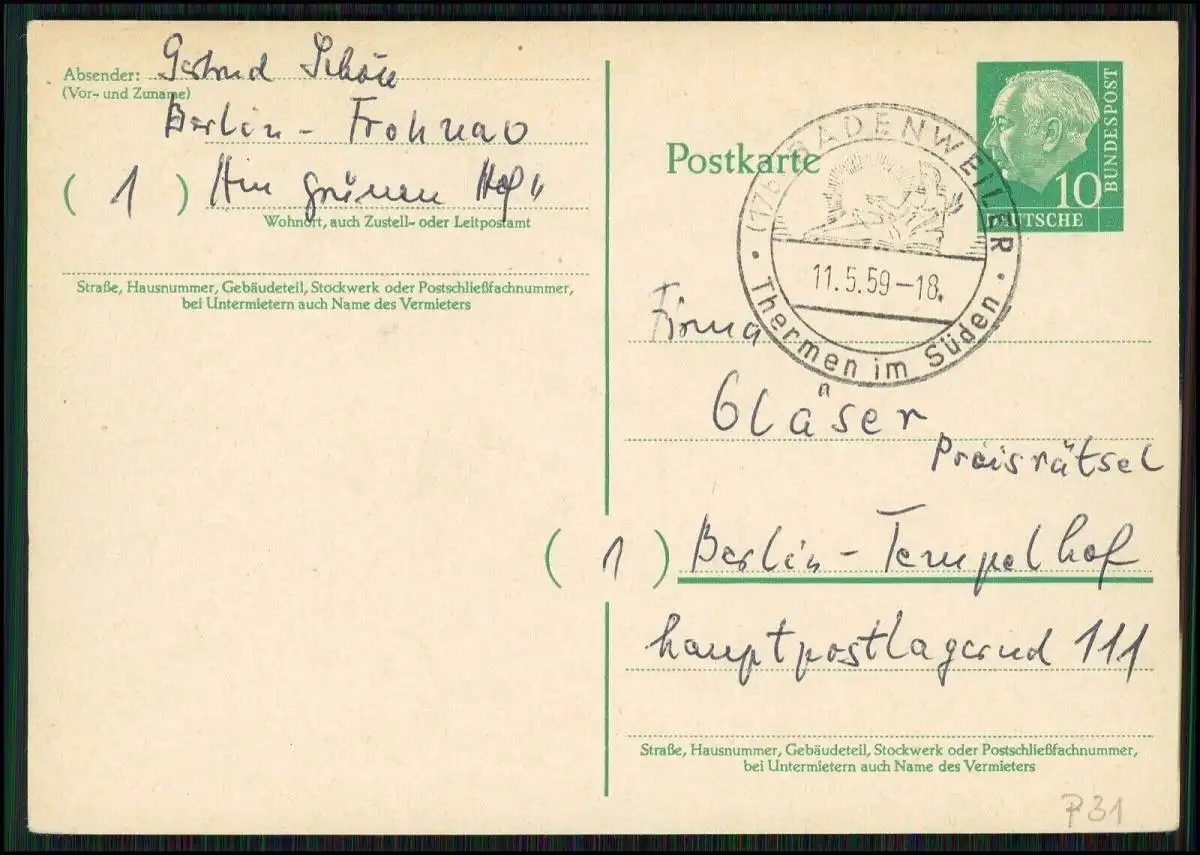 Absender: Gertrud
(Vor- und Zuname)
Berlin - Frohnau
( 1 ) grünen Hof"
Wohnort, auch Zustell- oder Leitpostamt
Straße, Hausnummer, Gebäudeteil, Stockwerk oder Postschließfachnummer,
bei Untermietern auch Name des Vermieters
Postkarte
BUNDESPOST
10
DEUTSCHE
(17b) BADENWEILER
11.5.59-18.
Thermen im Süden
Firma
Gläser
Preisrätsel
( 1 ) Berlin - Tempelhof
hauptpostlagernd 111
Straße, Hausnummer, Gebäudeteil, Stockwerk oder Postschließfachnummer,
bei Untermietern auch Name des Vermieters
P31